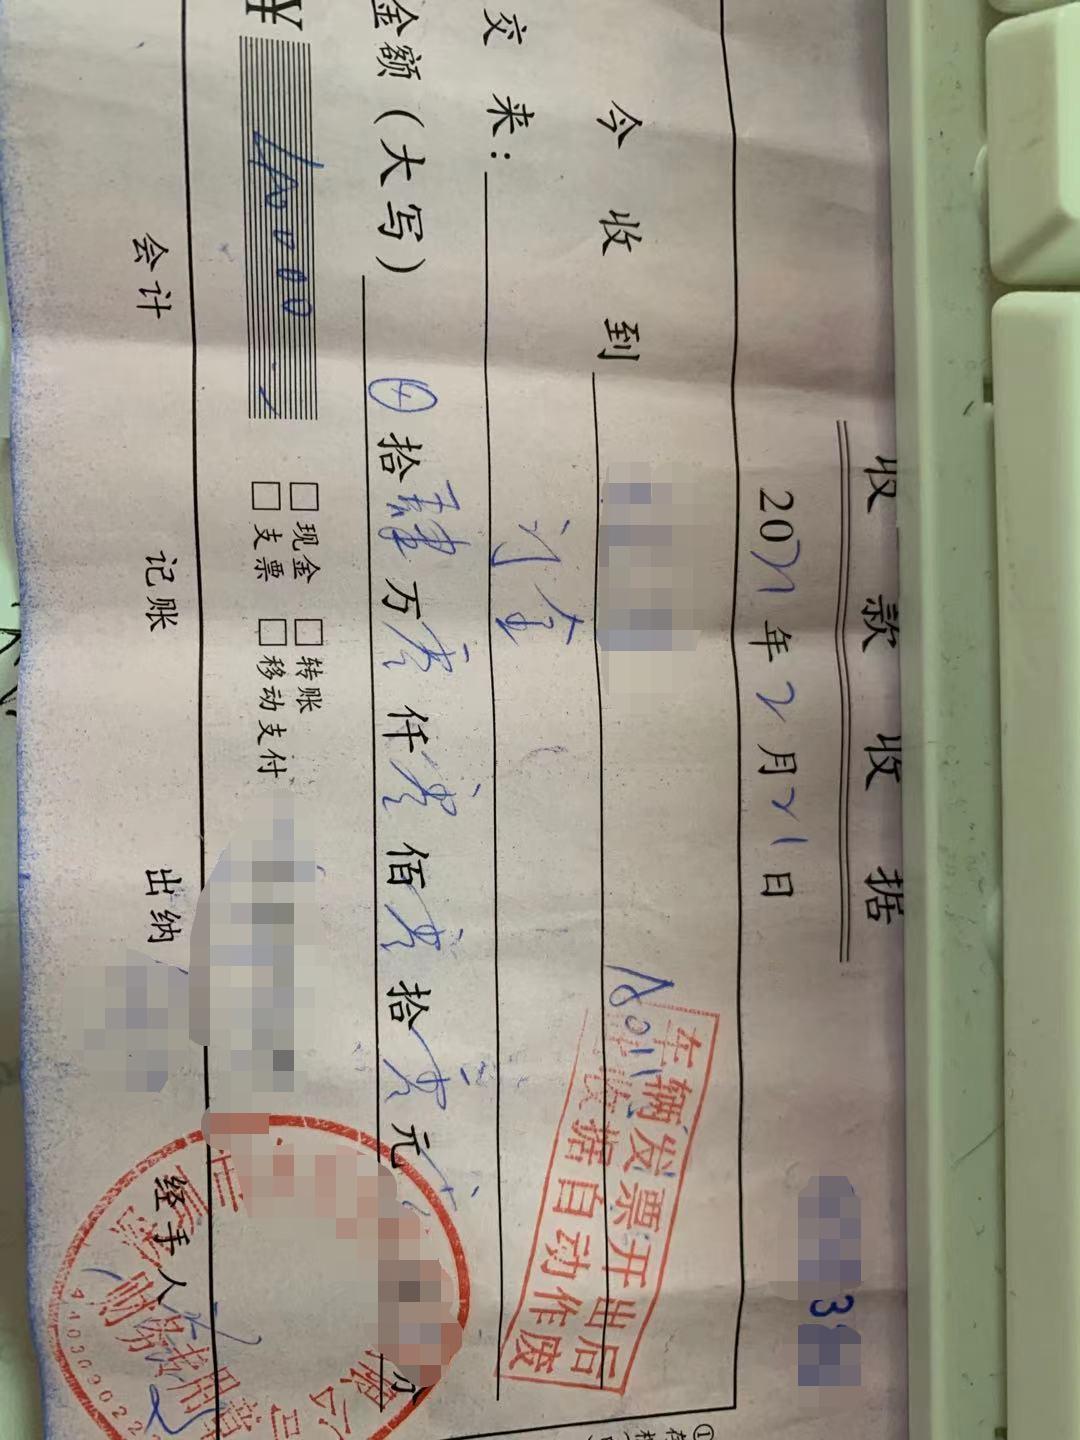 收款收据
2021年2月21日
今收到
交来：订金
金额（大写）⊕拾肆万零仟零佰零拾零元
分
¥ 40000
□现金 □转账
□支票 □移动支付
会计 记账 出纳 经手人
车辆发票开出后
此收据自动作废
财务专用章